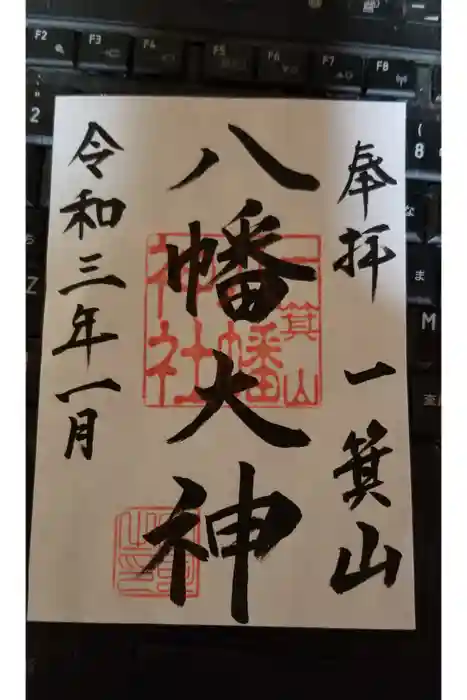 奉拝 一箕山
八幡大神
令和三年一月
一箕山
八幡
神社
F2
F3
F4
F5
F6
F7
F8
2
8
(
な
ま
M
Z
ち